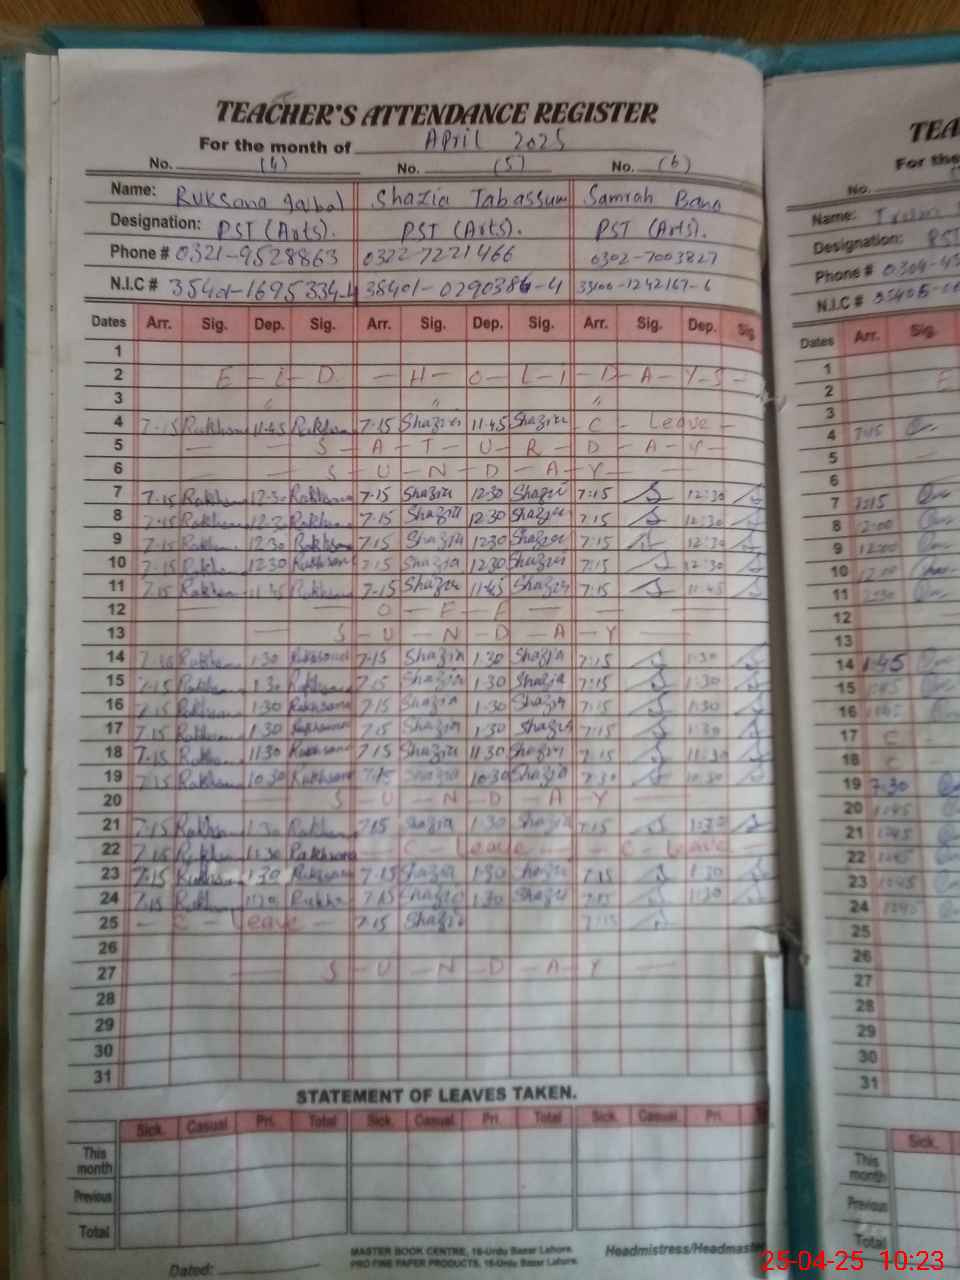 TEACHER'S ATTENDANCE REGISTER
For the month of April 2025
No. (4) No. (5) No. (6)
Name: Ruksana Iqbal Shazia Tabassum Samrah Bano
Designation: PST (Arts). PST (Arts). PST (Arts).
Phone # 0321-9528863 0322-7221466 0302-7003827
N.I.C # 38401-0290386-4
Dates Arr. Sig. Dep. Sig. Arr. Sig. Dep. Sig. Arr. Sig. Dep. Sig
1
2 E - I - D - H - O - L - I - D - A - Y - S -
3 " " "
4 7-15 Rukhsana 11-45 Rukhsana 7-15 Shazia 11-45 Shazia - C - Leave -
5 S - A - T - U - R - D - A - Y -
6 S - U - N - D - A - Y -
7 7-15 Rukhsana 12-30 Rukhsana 7-15 Shazia 12-30 Shazia 7:15 12:30
8 7-15 Rukhsana 12-30 Rukhsana 7-15 Shazia 12-30 Shazia 7:15 12:30
9 7-15 Rukhsana 12-30 Rukhsana 7-15 Shazia 12-30 Shazia 7:15 12:30
10 7-15 Rukhsana 12-30 Rukhsana 7-15 Shazia 12-30 Shazia 7:15 12:30
11 7-15 Rukhsana 11-45 Rukhsana 7-15 Shazia 11-45 Shazia 7:15 11-45
12 — O - F - F — — —
13 — S - U - N - D - A - Y —
14 7-15 Rukhsana 1-30 Rukhsana 7-15 Shazia 1-30 Shazia 7:15 1:30
15 7-15 Rukhsana 1-30 Rukhsana 7-15 Shazia 1-30 Shazia 7:15 1:30
16 7-15 Rukhsana 1-30 Rukhsana 7-15 Shazia 1-30 Shazia 7:15 1:30
17 7-15 Rukhsana 1-30 Rukhsana 7-15 Shazia 1-30 Shazia 7:15 1:30
18 7-15 Rukhsana 11-30 Rukhsana 7-15 Shazia 11-30 Shazia 7:15 11:30
19 7-15 Rukhsana 10-30 Rukhsana 7-15 Shazia 10-30 Shazia 7:30 10:30
20 — S - U - N - D - A - Y —
21 7-15 Rukhsana 1-30 Rukhsana 7-15 Shazia 1-30 Shazia 7:15 1:30
22 7-15 Rukhsana 11-30 Rukhsana — C - Leave — - C - Leave —
23 7-15 Rukhsana 1-30 Rukhsana 7-15 Shazia 1-30 Shazia 7:15 1:30
24 7-15 Rukhsana Rukhsana 7-15 Shazia 1-30 Shazia 7:15 1:30
25 - C - Leave - 7-15 Shazia 7:15
26
27 — S - U - N - D - A - Y —
28
29
30
31
STATEMENT OF LEAVES TAKEN.
Sick. Casual Pri. Total Sick. Casual Pri. Total Sick. Casual Pri.
This month
Previous
Total
Dated:
MASTER BOOK CENTRE, 16-Urdu Bazar Lahore.
PRO FINE PAPER PRODUCTS, 16-Urdu Bazar Lahore.
Headmistress/Headmaste
TEA
For the
No.
Name:
Designation: PST
Phone #
N.I.C #
Dates Arr. Sig.
1
2 E
3
4
5
6
7 7:15
8 12:00
9 12:00
10 12:00
11
12
13
14 1:45
15 1:45
16 1:45
17 C
18 C
19 7:30
20
21
22
23
24
25
26
27
28
29
30
31
Sick.
This month
Previous
Total
25-04-25 10:23